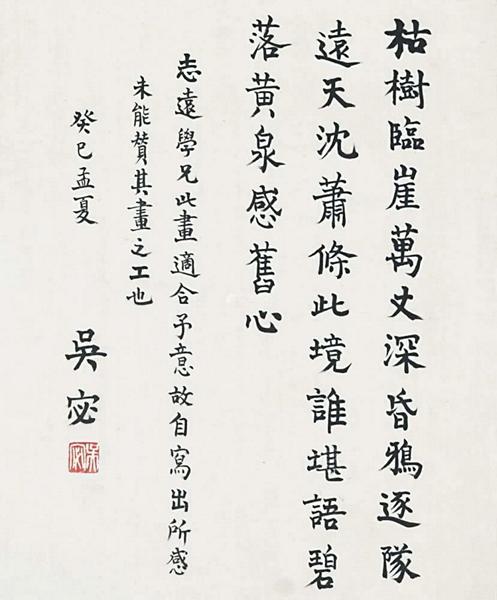 枯樹臨崖萬丈深昏鴉逐隊
遠天沈蕭條此境誰堪語碧
落黃泉感舊心
志遠學兄此畫適合予意故自寫出所感
未能贊其畫之工也
癸巳孟夏
吳宓
吳宓